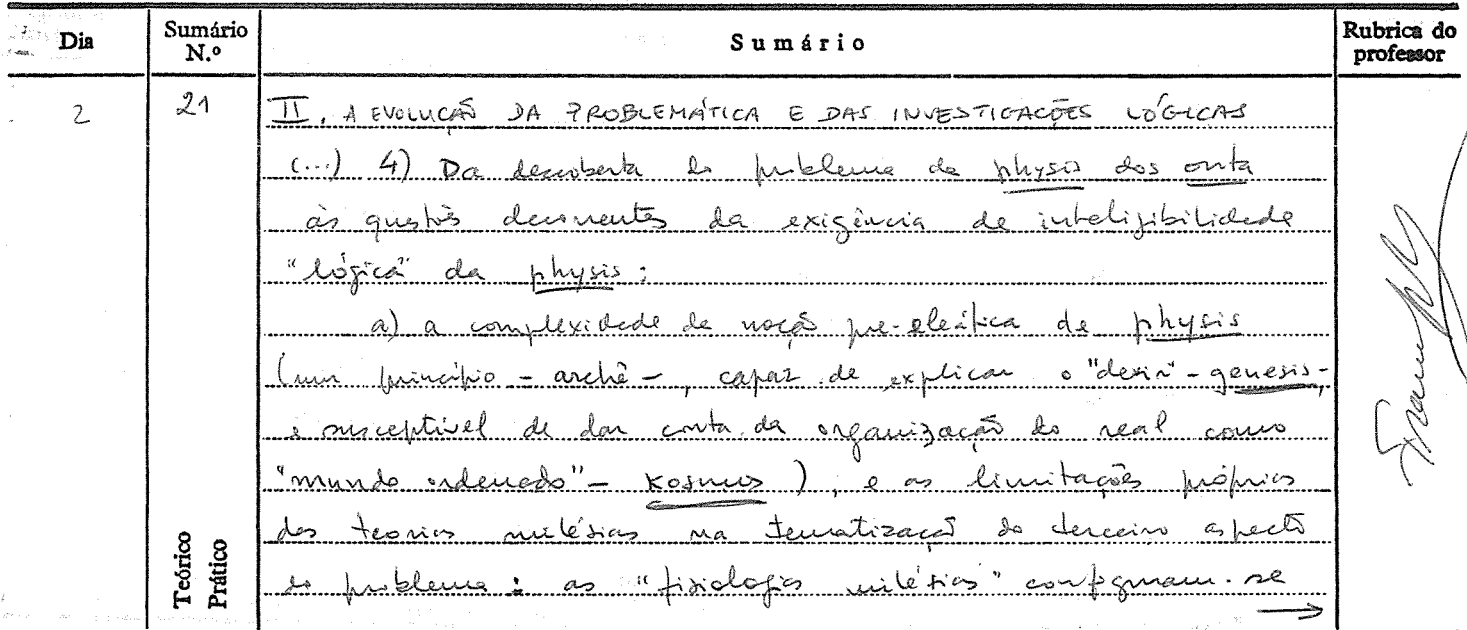 Dia
Sumário N.º
Sumário
Rubrica do professor
2
21
II. A EVOLUÇÃO DA PROBLEMÁTICA E DAS INVESTIGAÇÕES LÓGICAS
(...) 4) Da descoberta do problema da physis dos onta
às questões decorrentes da exigência de inteligibilidade
"lógica" da physis:
a) a complexidade da noção pré-eleática de physis
(um princípio - archê -, capaz de explicar o "devir" - genesis -,
e susceptível de dar conta da organização do real como
"mundo ordenado" - Kosmos), e as limitações próprias
das teorias milésias na tematização do terceiro aspecto
do problema: as "fisiologias milésias" configuram-se
→
Teórico
Prático